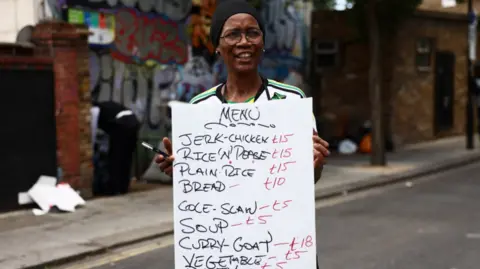 MENU
JERK-CHICKEN £15
RICE 'N' PEASE £15
PLAIN RICE £15
BREAD — £10
COLE-SLAW — £5
SOUP — £5
CURRY GOAT — £18
VEGETABLE £5